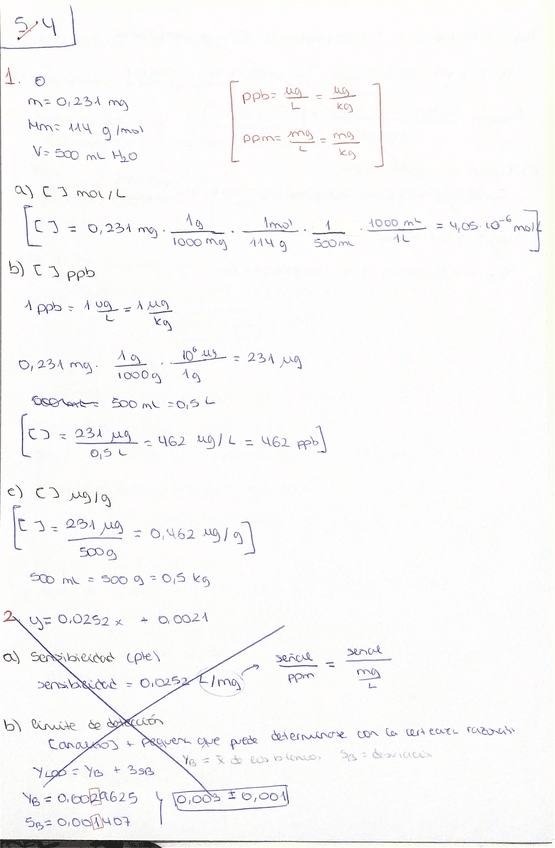 5/4
1.
m = 0,231 mg
Mm = 114 g/mol
V = 500 mL H₂O
[ppb = µg/L = µg/kg
ppm = mg/L = mg/kg]
a) [ ] mol/L
[[ ] = 0,231 mg · 1g/1000 mg · 1mol/114 g · 1/500 mL · 1000 mL/1L = 4,05·10⁻⁶ mol/L]
b) [ ] ppb
1 ppb = 1 µg/L = 1 µg/kg
0,231 mg · 1g/1000g · 10⁶ µg/1g = 231 µg
500 mL = 0,5 L
[[ ] = 231 µg/0,5 L = 462 µg/L = 462 ppb]
c) [ ] µg/g
[[ ] = 231 µg/500g = 0,462 µg/g]
500 mL = 500 g = 0,5 kg
2. y = 0,0252 x + 0,0021
a) Sensibilidad (pte)
sensibilidad = 0,0252 L/mg → señal/ppm = señal/(mg/L)
b) límite de detección
[analito] + pequeña que puede determinarse con la certeza razonab.
Y_B = x̄ de los blancos S_B = desviación
Y_LOD = Y_B + 3S_B
Y_B = 0,0029625
S_B = 0,001407
0,003 ± 0,001